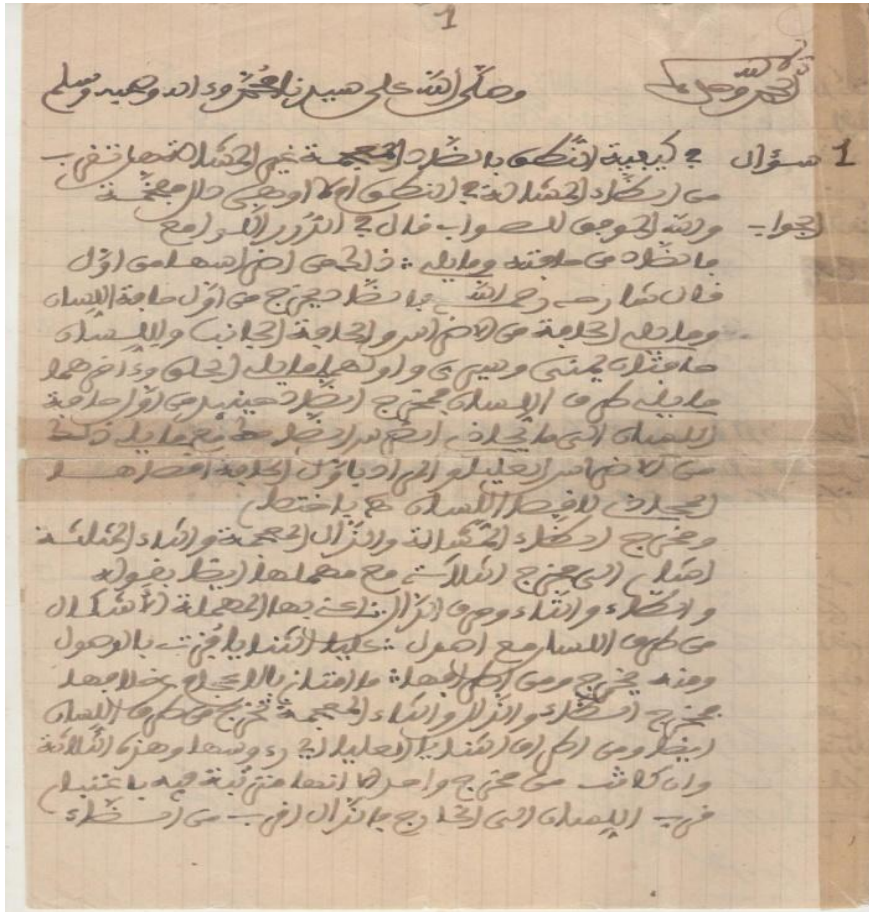 1
الحمد لله وصلى الله على سيدنا محمد وءاله وصحبه وسلم
1 سؤال في كيفية النطق بالضاد المعجمة غير المشالة هل تقرب
من الظاء المشالة في النطق ام لا او هي دال مفخمة
الجواب والله الموفق للصواب قال في الدرر اللوامع
بالضاد من حافته وما يليه من الأضراس من أول
قال شارحه رحمه الله فالضاد يخرج من أول حافة اللسان
وما يليه الحافة من الأضراس والحافة الجانب وللسان
حافتان يمنى ويسرى وأولهما ما يلي الحلق وءاخرهما
ما يلي طرف اللسان فمخرج الضاد حينئذ من أول حافة
اللسان التي ما يحاذي الضرس مع ما يلي ذلك
من الأضراس العليا والمراد بأول الحافة اقصاها
المحاذي لاقصا اللسان هـ باختصار
ومخرج الظاء المشالة والذال المعجمة والثاء المثلثة
إلى مخرج الثلاثة مع مهملها أيضا بقوله
والطاء والتاء وحرف الدال أعني بها المهملة الأشكال
من طرف اللسان مع أصول عليا الثنايا فزت بالوصول
ومنه يخرج ومن أطرافها ما امتاز بالإعجام عن خلافها
فمخرج الظاء والذال والثاء المعجمة تخرج من طرف اللسان
أيضا ومن أطراف الثنايا العليا أي رءوسها وهذه الثلاثة
وان كانت من مخرج واحد إلا انها مترتبة فيه باعتبار
قرب اللسان إلى الخارج فالذال اقرب من الظاء